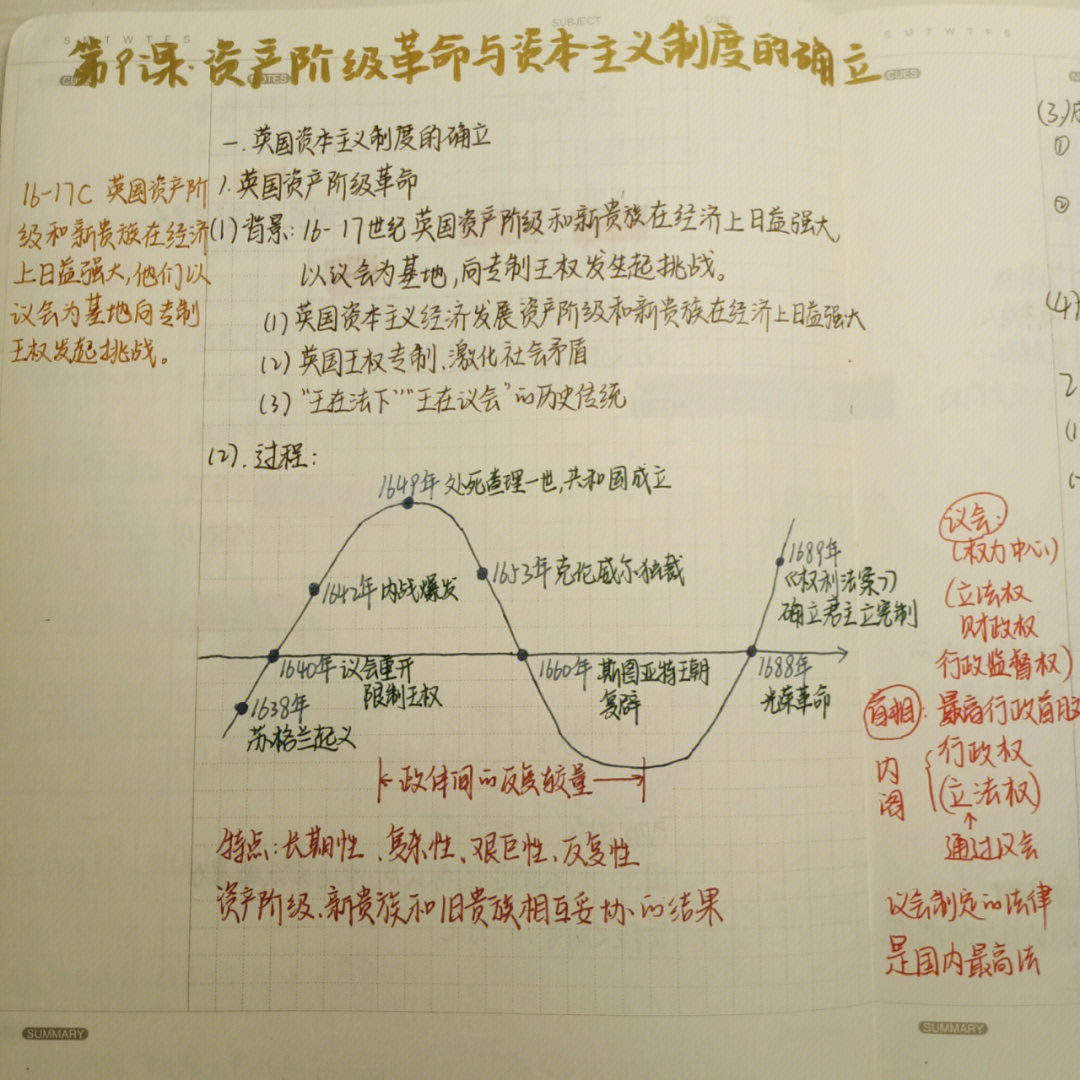 SUBJECT
DATE
S M T W T F S
S M T W T F S
第9课·资产阶级革命与资本主义制度的确立
NOTES
CUES
一.英国资本主义制度的确立
1.英国资产阶级革命
16-17C 英国资产阶
级和新贵族在经济
上日益强大,他们以
议会为基地向专制
王权发起挑战。
(1)背景:16-17世纪英国资产阶级和新贵族在经济上日益强大,
以议会为基地,向专制王权发生起挑战。
(1)英国资本主义经济发展资产阶级和新贵族在经济上日益强大
(2)英国王权专制、激化社会矛盾
(3)“王在法下”“王在议会”的历史传统
(2).过程:
1649年 处死查理一世,共和国成立
1653年克伦威尔独裁
1642年内战爆发
1689年
《权利法案》
确立君主立宪制
1640年 议会重开
限制王权
1660年 斯图亚特王朝
复辟
1688年
光荣革命
1638年
苏格兰起义
政体间的反复较量
特点:长期性、复杂性、艰巨性、反复性
资产阶级、新贵族和旧贵族相互妥协的结果
SUMMARY
(3)
①
②
(4)
2
(1
议会:
(权力中心)
(立法权
财政权
行政监督权)
首相:最高行政首脑
内阁
行政权
(立法权)
↑
通过议会
议会制定的法律
是国内最高法
SUMMARY